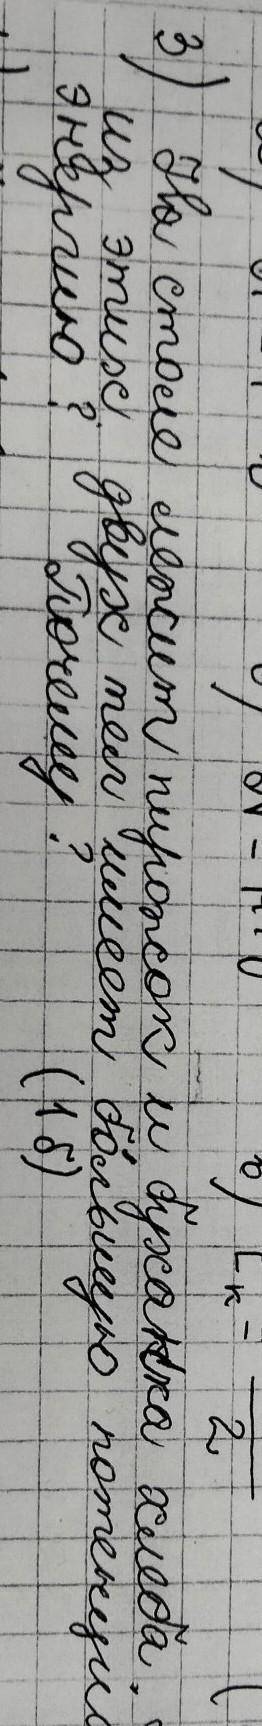 3) На столе лежит пирожок и буханка хлеба.
из этих двух тел имеет большую потенциа
энергию? Почему? (1 б)